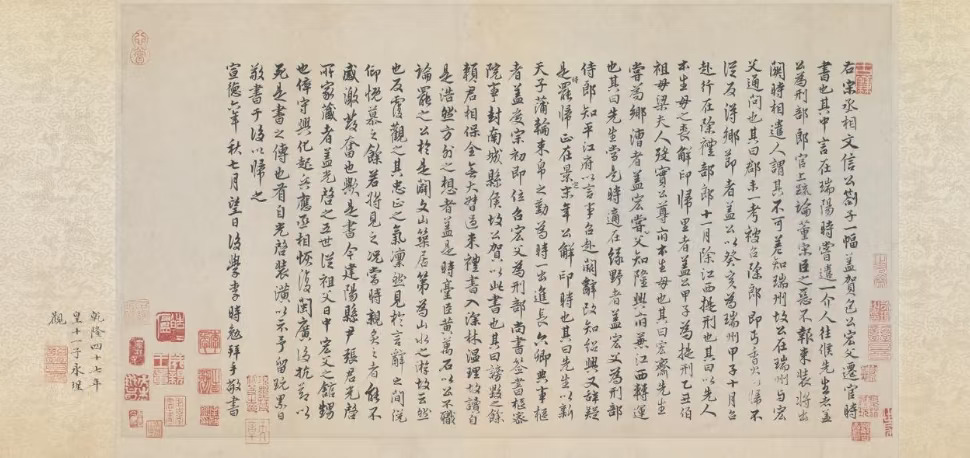 右宋丞相文信公劄子一幅蓋賀包公宏父遷官時
書也其中言在瑞陽時嘗遣一介人往候先生者蓋
公為刑部郎官上疏論董宋臣之惡不報束裝將出
闕時相遣人謂其不可差知瑞州故公在瑞州與宏
父通問也其曰郡未一考被召除郎即丐香火歸不
從及得鄉節者蓋公以癸亥為瑞州甲子十月召
赴行在除禮部郎十一月除江西提刑也其曰以先人
本生母之喪解印歸里者蓋公甲子為提刑乙丑伯
祖母梁夫人歿實公尊府本生母也其曰宏齋先生
嘗為鄉漕者蓋宏父知隆興府兼江西轉運
也其曰先生當是時適在綠野者蓋宏父為刑部
侍郎知平江府以言事召赴闕辭改知紹興又辭疑
是罷歸正在景定末年公解印時也其曰先生以新
天子蒲輪束帛之勤為時一出進長六卿典事樞
者蓋度宗初即位召宏父為刑部尚書簽書樞密
院事封南城縣侯故公賀以此書也其曰謗毀之餘
賴君相保全無大咎過來禮書入深林溫理故讀自
是浩然方外之想者蓋是時臺臣黃萬石以公不職
論罷之公於是闢文山築居第為山水之遊故云然
也反覆觀之其忠正之氣凜然見於言辭之間悅
仰慨慕之餘若將見之況當時親炙之者能不
感激發奮也歟是書今建陽縣尹張君光啓
所家藏者蓋光啓之五世從祖父日中宏父之館甥
也倅守興化起兵應丞相恢復閩廣後抗節以
死是書之傳也有自光啓裝潢以示予留玩累日
敬書于後以歸之
宣德六年秋七月望日後學李時勉拜手敬書
乾隆四十七年
皇十一子永瑆
觀